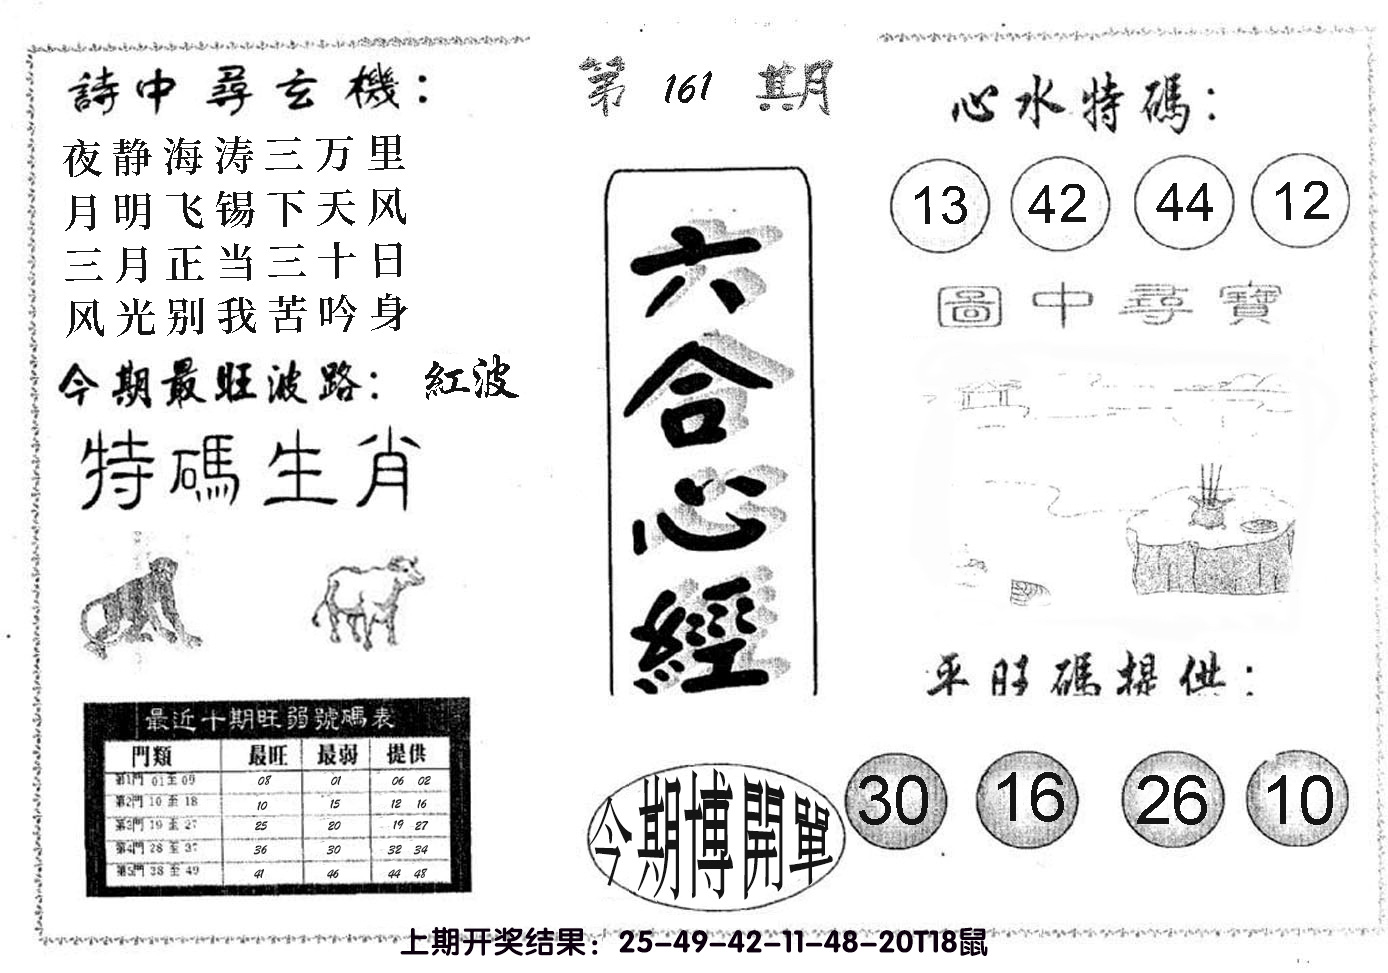 詩中尋玄機：
夜静海涛三万里
月明飞锡下天风
三月正当三十日
风光别我苦吟身
今期最旺波路：紅波
特碼生肖
最近十期旺弱號碼表
門類 最旺 最弱 提供
第1門 01至09 08 01 06 02
第2門 10至18 10 15 12 16
第3門 19至27 25 20 19 27
第4門 28至37 36 30 32 34
第5門 38至49 41 46 44 48
第161期
六合心經
今期博開單
心水特碼：
13 42 44 12
圖中尋寶
平旺碼提供：
30 16 26 10
上期开奖结果：25-49-42-11-48-20T18鼠